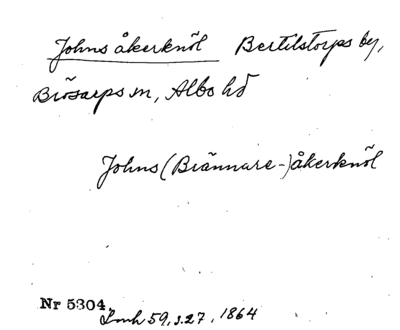 Johns åkerknöl Bertilstorps by,
Brösarps sn, Albo hd
Johns (Brännare-)åkerknöl
Nr 5304, Lmh 59, s. 27, 1864